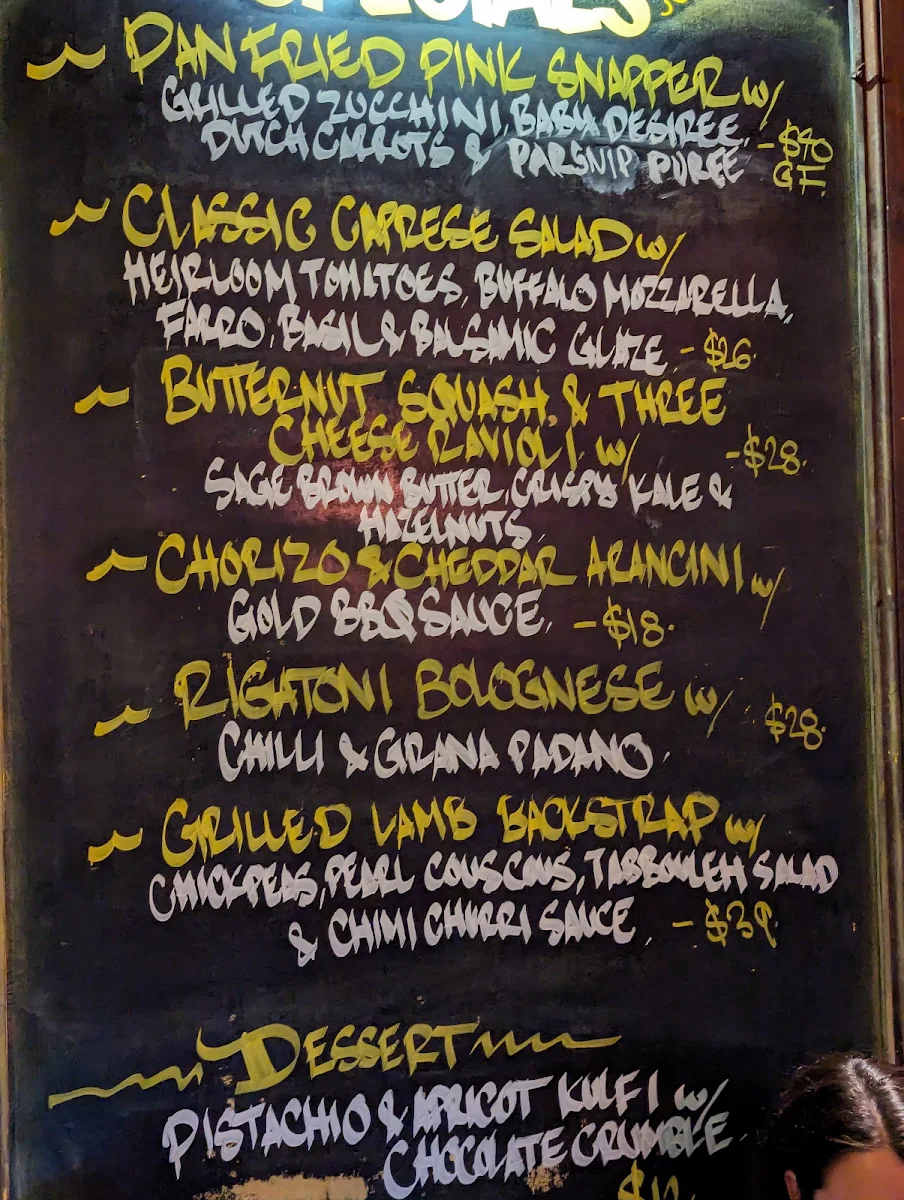 SPECIALS
~ PAN FRIED PINK SNAPPER w/
GRILLED ZUCCHINI, BABY DESIREE,
DUTCH CARROTS & PARSNIP PUREE - $40
G.F.
~ CLASSIC CAPRESE SALAD w/
HEIRLOOM TOMATOES, BUFFALO MOZZARELLA,
FARRO, BASIL & BALSAMIC GLAZE - $26.
~ BUTTERNUT SQUASH, & THREE
CHEESE RAVIOLI w/ - $28.
SAGE BROWN BUTTER, CRISPY KALE &
HAZELNUTS,
~ CHORIZO & CHEDDAR ARANCINI w/
GOLD BBQ SAUCE, - $18.
~ RIGATONI BOLOGNESE w/ $28.
CHILLI & GRANA PADANO.
~ GRILLED LAMB BACKSTRAP w/
CHICKPEAS, PEARL COUSCOUS, TABBOULEH SALAD
& CHIMI CHURRI SAUCE, - $39.
DESSERT
PISTACHIO & APRICOT KULFI w/
CHOCOLATE CRUMBLE